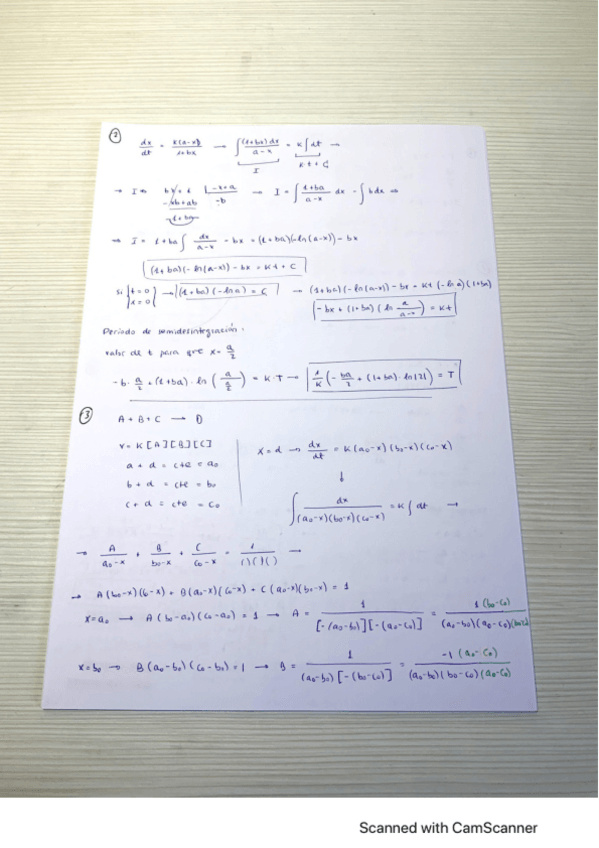 ②
dx/dt = K(a-x)/(1+bx) → ∫ (1+bx)dx/(a-x) = K∫dt →
I K·t + C
→ I = bx+1 |-x+a → I = ∫ (1+ba)/(a-x) dx - ∫ b dx →
-xb+ab -b
1+ba
→ I = 1+ba ∫ dx/(a-x) - bx = (1+ba)(-ln(a-x)) - bx
(1+ba)(-ln(a-x)) - bx = Kt + C
si { t=0 x=0 } → (1+ba)(-ln a) = C → (1+ba)(-ln(a-x)) - bx = Kt (-ln a)(1+ba)
-bx + (1+ba)(ln a/(a-x)) = Kt
Período de semidesintegración:
valor de t para que x = a/2
-b·a/2 + (1+ba)·ln(a/(a/2)) = K·T → 1/K(-ba/2 + (1+ba)·ln|2|) = T
③ A + B + C → D
v = K[A][B][C]
a + d = cte = a₀
b + d = cte = b₀
c + d = cte = c₀
x = d → dx/dt = K(a₀-x)(b₀-x)(c₀-x)
↓
∫ dx/((a₀-x)(b₀-x)(c₀-x)) = K∫dt →
→ A/(a₀-x) + B/(b₀-x) + C/(c₀-x) = 1/( )( )( ) →
→ A(b₀-x)(c₀-x) + B(a₀-x)(c₀-x) + C(a₀-x)(b₀-x) = 1
x=a₀ → A(b₀-a₀)(c₀-a₀) = 1 → A = 1/([-(a₀-b₀)][-(a₀-c₀)]) = 1(b₀-c₀)/((a₀-b₀)(a₀-c₀)(b₀-c₀))
x=b₀ → B(a₀-b₀)(c₀-b₀) = 1 → B = 1/((a₀-b₀)[-(b₀-c₀)]) = -1(a₀-c₀)/((a₀-b₀)(b₀-c₀)(a₀-c₀))
Scanned with CamScanner